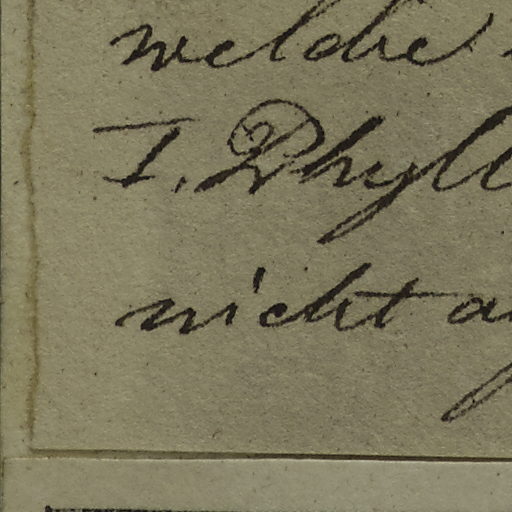 welche
T. Phyll
nicht a